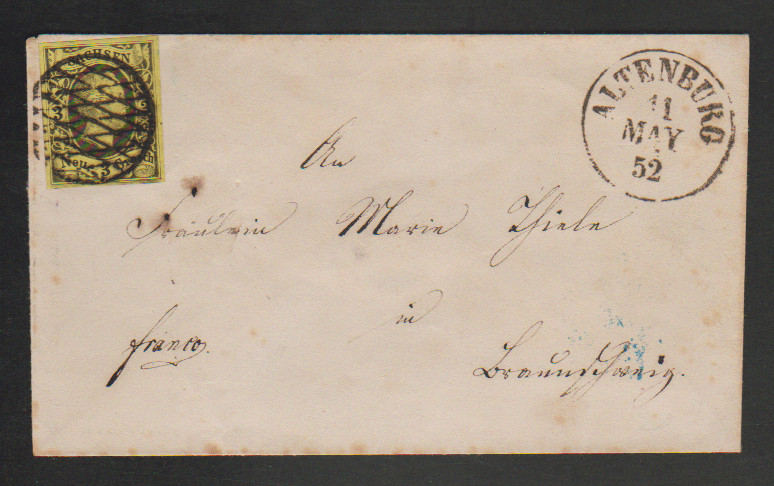 SACHSEN
Neu 3 Gr
ALTENBURG
11
MAY
52
An
Fräulein Marie Thiele
in
franco.
Braunschweig.